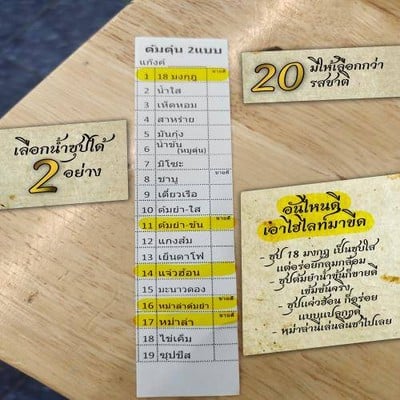 ต้มตุ๋น 2แบบ
แก๊งค์
1 18 มงกุฎ ขายดี
2 น้ำใส
3 เห็ดหอม
4 สาหร่าย
5 มันกุ้ง
6 น้ำข้น (หมูตุ๋น)
7 มิโซะ
8 ชาบู ขายดี
9 เตี๋ยวเรือ
10 ต้มยำ-ใส
11 ต้มยำ-ข้น ขายดี
12 แกงส้ม
13 เย็นตาโฟ
14 แจ่วฮ้อน
15 มะนาวดอง
16 หม่าล่าต้มยำ ขายดี
17 หม่าล่า ขายดี
18 ไข่เค็ม
19 ซุปชีส
20 มีให้เลือกกว่า
รสชาติ
เลือกน้ำซุปได้
2 อย่าง
อันไหนดี
เอาไฮไลท์มาขีด
- ซุป 18 มงกุฎ เป็นซุปใส
แต่อร่อยักลมกล่อม
- ซุปต้มยำน้ำข้นก็ขายดี
เข้มข้นจริง
- ซุปแจ่วฮ้อน ก็อร่อย
แบบแปลกดี
- หม่าล่านี่เด่นล้นชาไปเลย